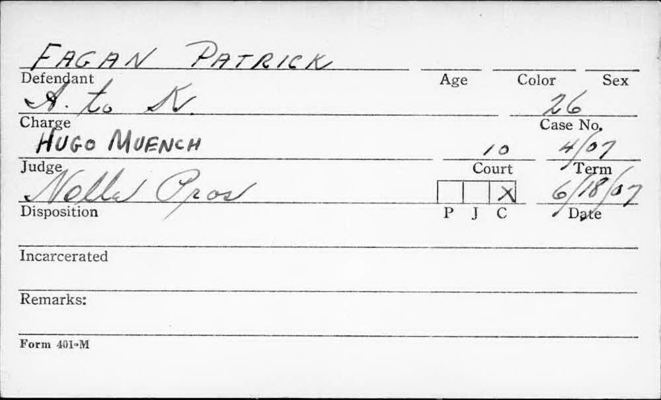 FAGAN PATRICK
Defendant Age Color Sex
A. to K. 26
Charge Case No.
HUGO MUENCH 10 4/07
Judge Court Term
Nolle Pros X 6/18/07
Disposition P J C Date
Incarcerated
Remarks:
Form 401-M